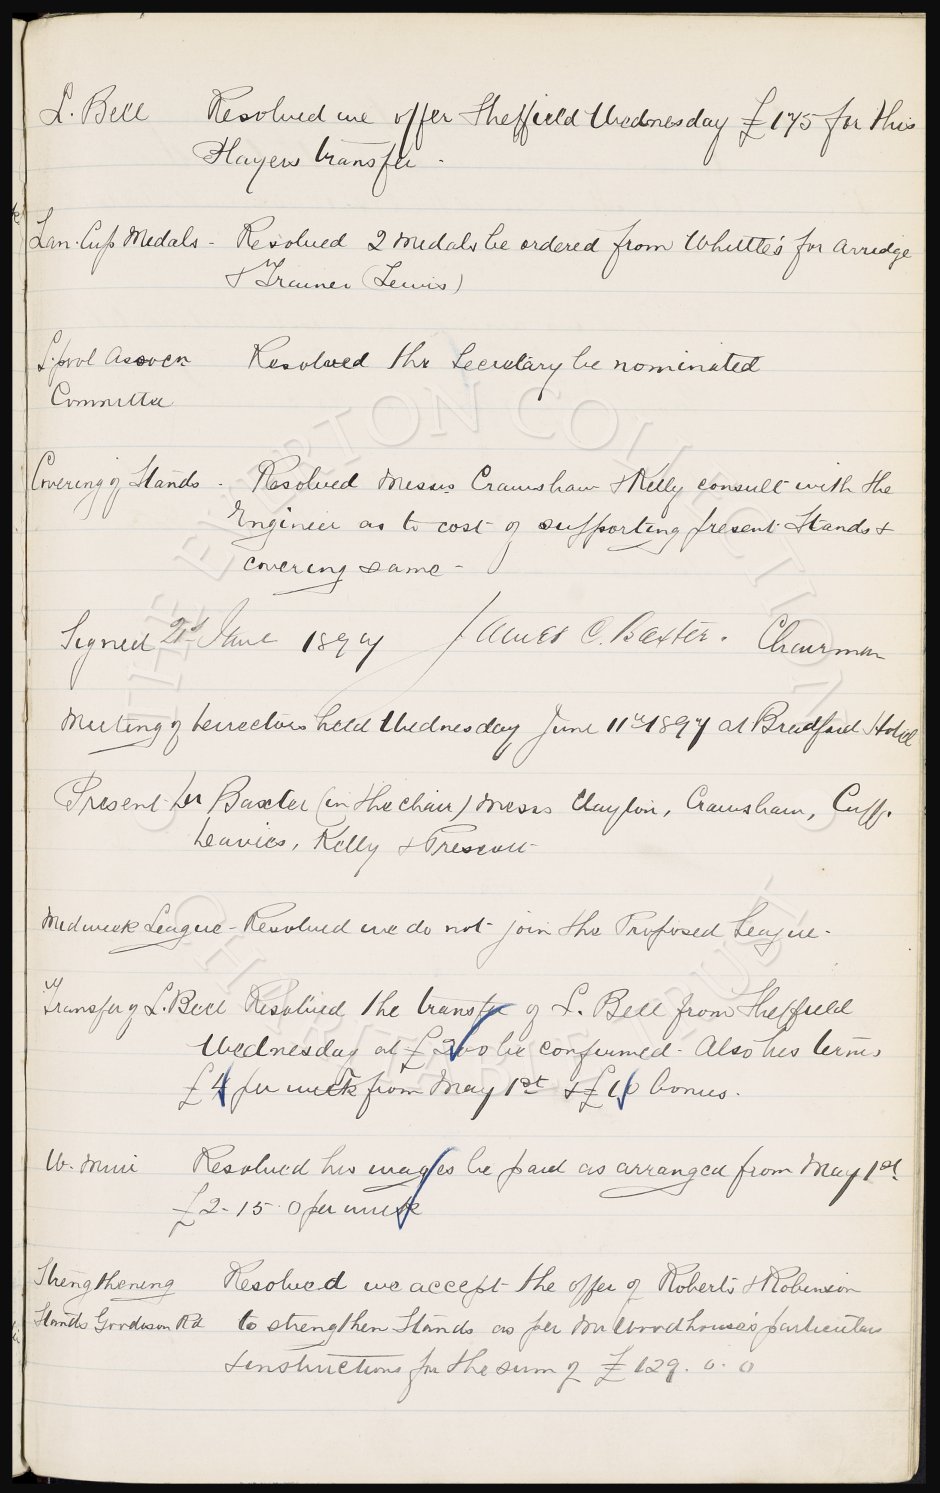 L. Bell Resolved we offer Sheffield Wednesday £175 for this
Players transfer.
Lan. Cup Medals - Resolved 2 medals be ordered from Whittle's for Arridge
& Trainer (Lewis)
L'pool Assocn Resolved the Secretary be nominated
Committee
Covering of Stands - Resolved Messrs Crawshaw & Kelly consult with the
Engineer as to cost of supporting present Stands &
covering same -
Signed June 1897 James C. Baxter. Chairman
Meeting of Directors held Wednesday June 1897 at Bradford Hotel
Present Dr Baxter (in the chair) Messrs Clayton, Crawshaw, Cuff.
Davies, Kelly & Prescott
Midweek League - Resolved we do not join the Proposed League -
Transfer of L. Bell Resolved the transfer of L. Bell from Sheffield
Wednesday at £200 be confirmed - Also his terms
£4 per week from May 1st & £10 bonus.
W. Muir Resolved his wages be paid as arranged from May 1st
£2-15-0 per week
Strengthening Resolved we accept the offer of Roberts & Robinson
Stands Goodison Rd to strengthen Stands as per Mr Woodhouse's particulars
& instructions for the sum of £129.0.0
THE EVERTON COLLECTION
CHARITABLE TRUST